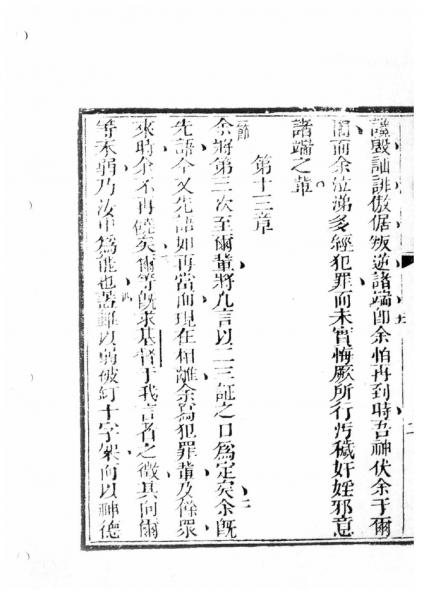 讒毀訕誹傲倨叛逆諸端卽余怕再到時吾神伏余于爾
間而余泣涕多經犯罪而未實悔厥所行汚穢奸婬邪意
諸端之輩
第十三章
節余將第三次至爾輩將凡言以二三証之口為定矣余旣
先語今又先語如再當面現在相離余寫犯罪輩及餘眾
來時余不再饒矣爾等旣求基督于我言者之徵其向爾
等不弱乃汝中為能也盖雖以弱被釘十字架尚以神德